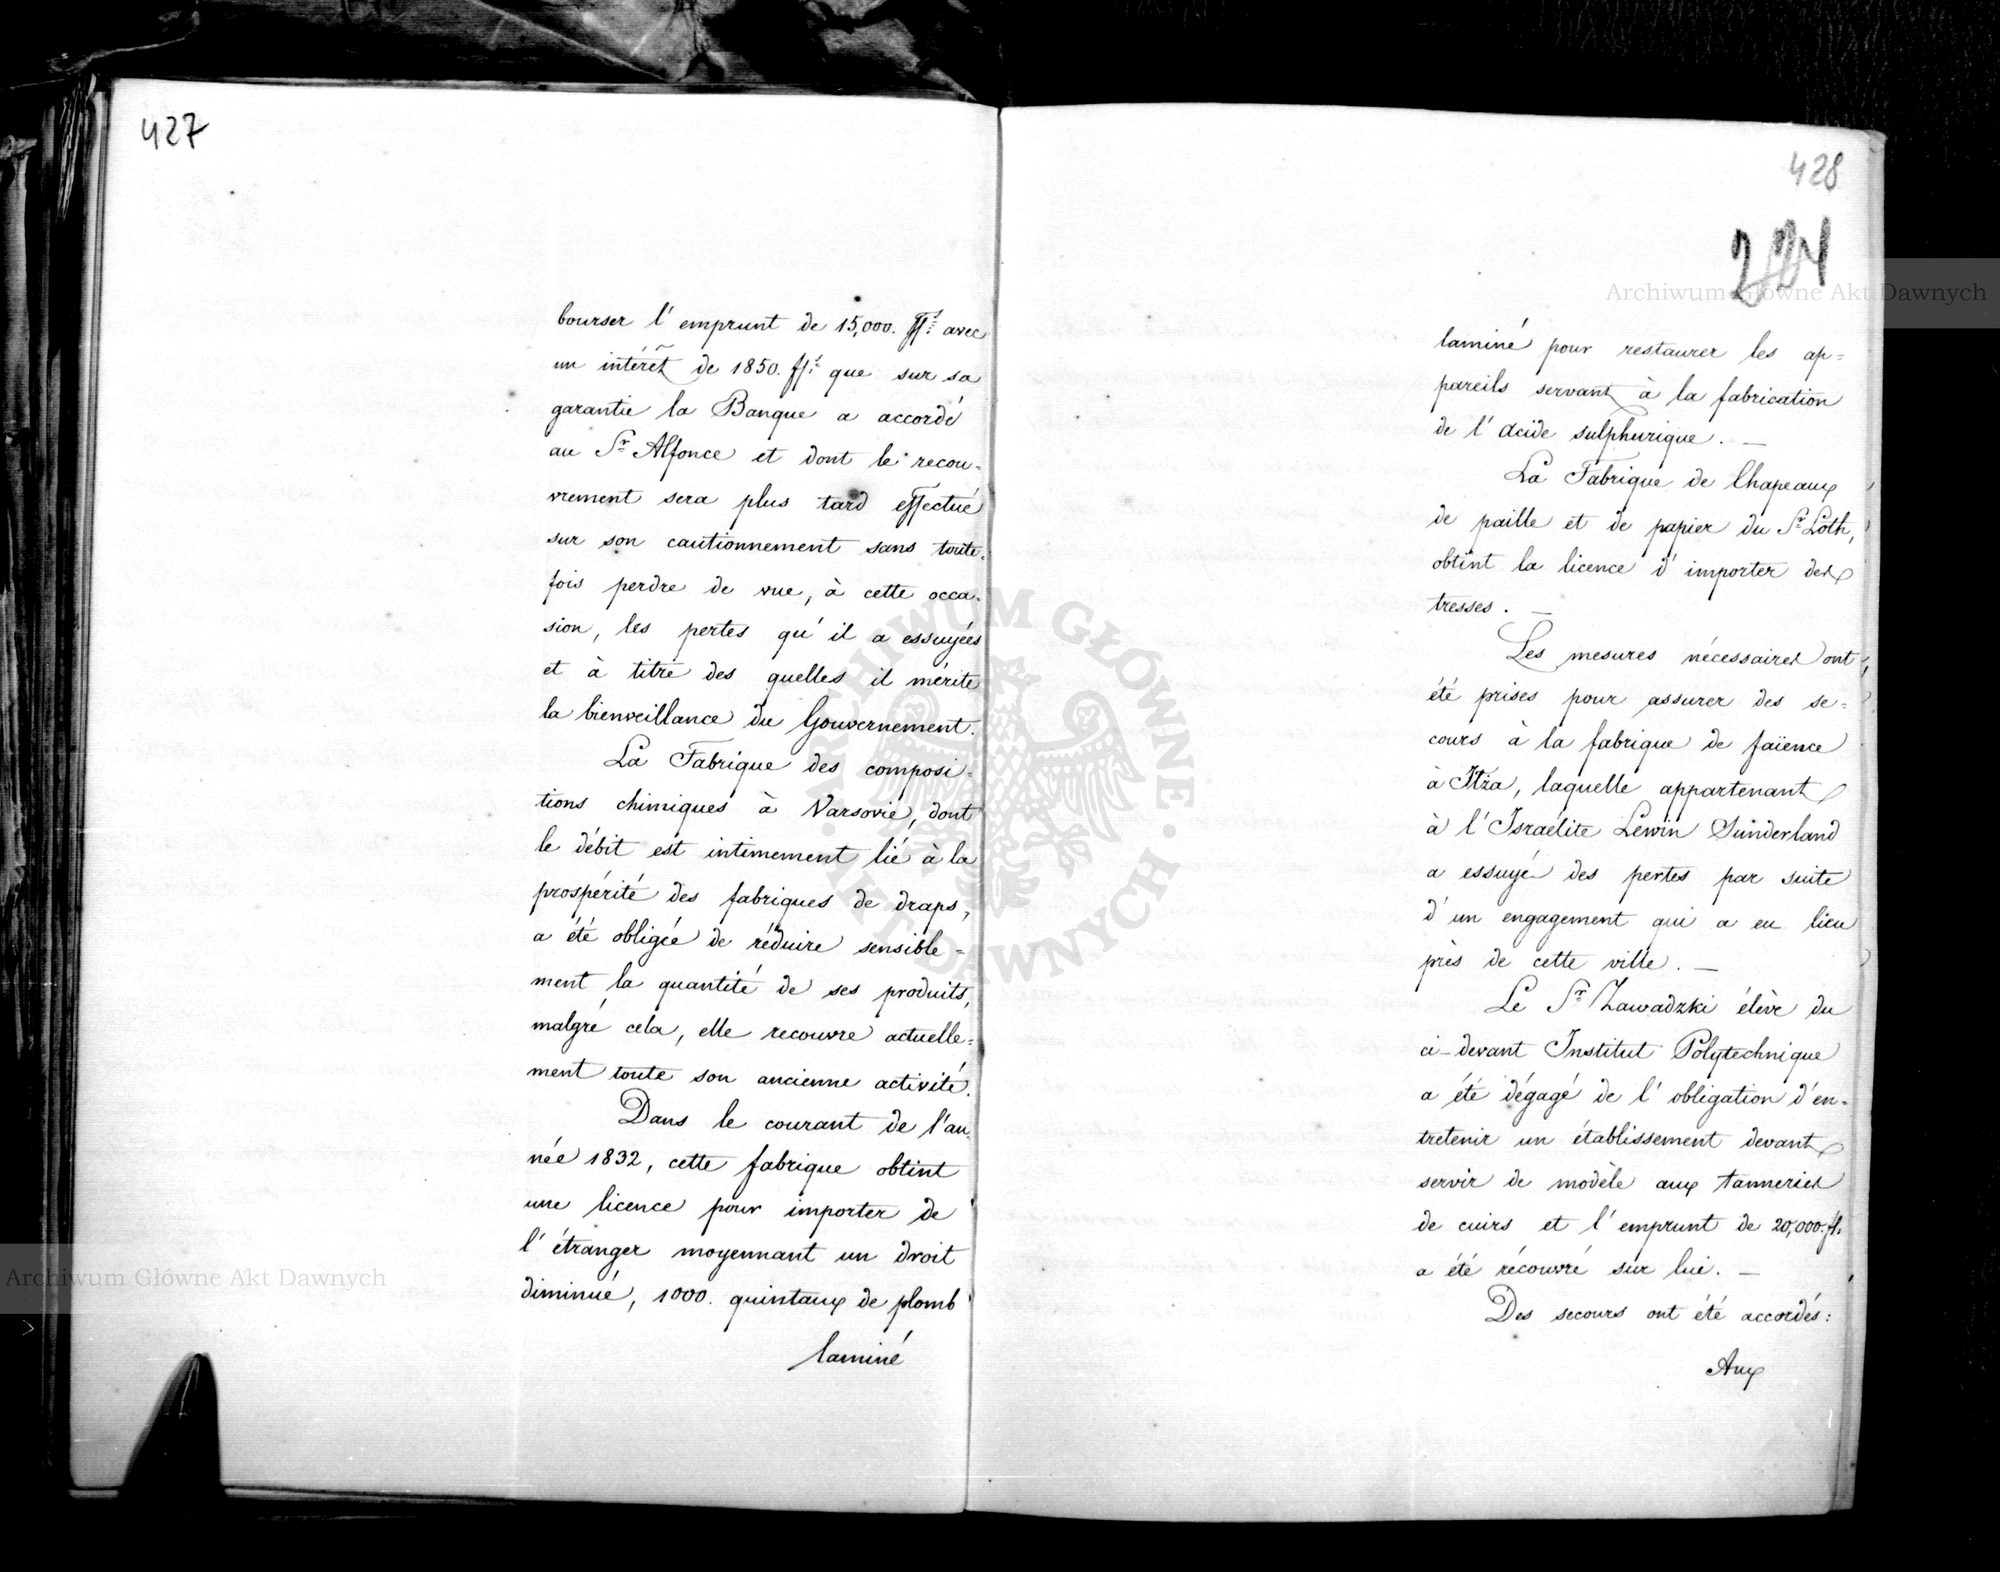 427
bourser l'emprunt de 15,000. ffs avec
un intérêt de 1850. ffs que sur sa
garantie la Banque a accordé
au Sr Alfonce et dont le recou-
vrement sera plus tard effectué
sur son cautionnement sans toute-
fois perdre de vue, à cette occa-
sion, les pertes qu'il a essuyées
et à titre des quelles il mérite
la bienveillance du Gouvernement.
La Fabrique des composi-
tions chimiques à Varsovie, dont
le débit est intimement lié à la
prospérité des fabriques de draps,
a été obligée de réduire sensible=
ment la quantité de ses produits,
malgré cela, elle recouvre actuelle-
ment toute son ancienne activité.
Dans le courant de l'an-
née 1832, cette fabrique obtint
une licence pour importer de
l'étranger moyennant un droit
diminué, 1000. quintaux de plomb
laminé
428
224
laminé pour restaurer les ap=
pareils servant à la fabrication
de l'acide sulphurique. —
La Fabrique de Chapeaux
de paille et de papier du Sr Loth,
obtint la licence d'importer des
tresses. —
Les mesures nécessaires ont
été prises pour assurer des se=
cours à la fabrique de faïence
à Itza, laquelle appartenant
à l'Israelite Lewin Sunderland
a essuyé des pertes par suite
d'un engagement qui a eu lieu
près de cette ville. —
Le Sr Zawadzki élève du
ci-devant Institut Polytechnique
a été dégagé de l'obligation d'en-
tretenir un établissement devant
servir de modèle aux tanneries
de cuirs et l'emprunt de 20,000. fl.
a été récouvré sur lui. —
Des secours ont été accordés:
Aux
Archiwum Główne Akt Dawnych
Archiwum Główne Akt Dawnych
ARCHIWUM GŁÓWNE AKT DAWNYCH